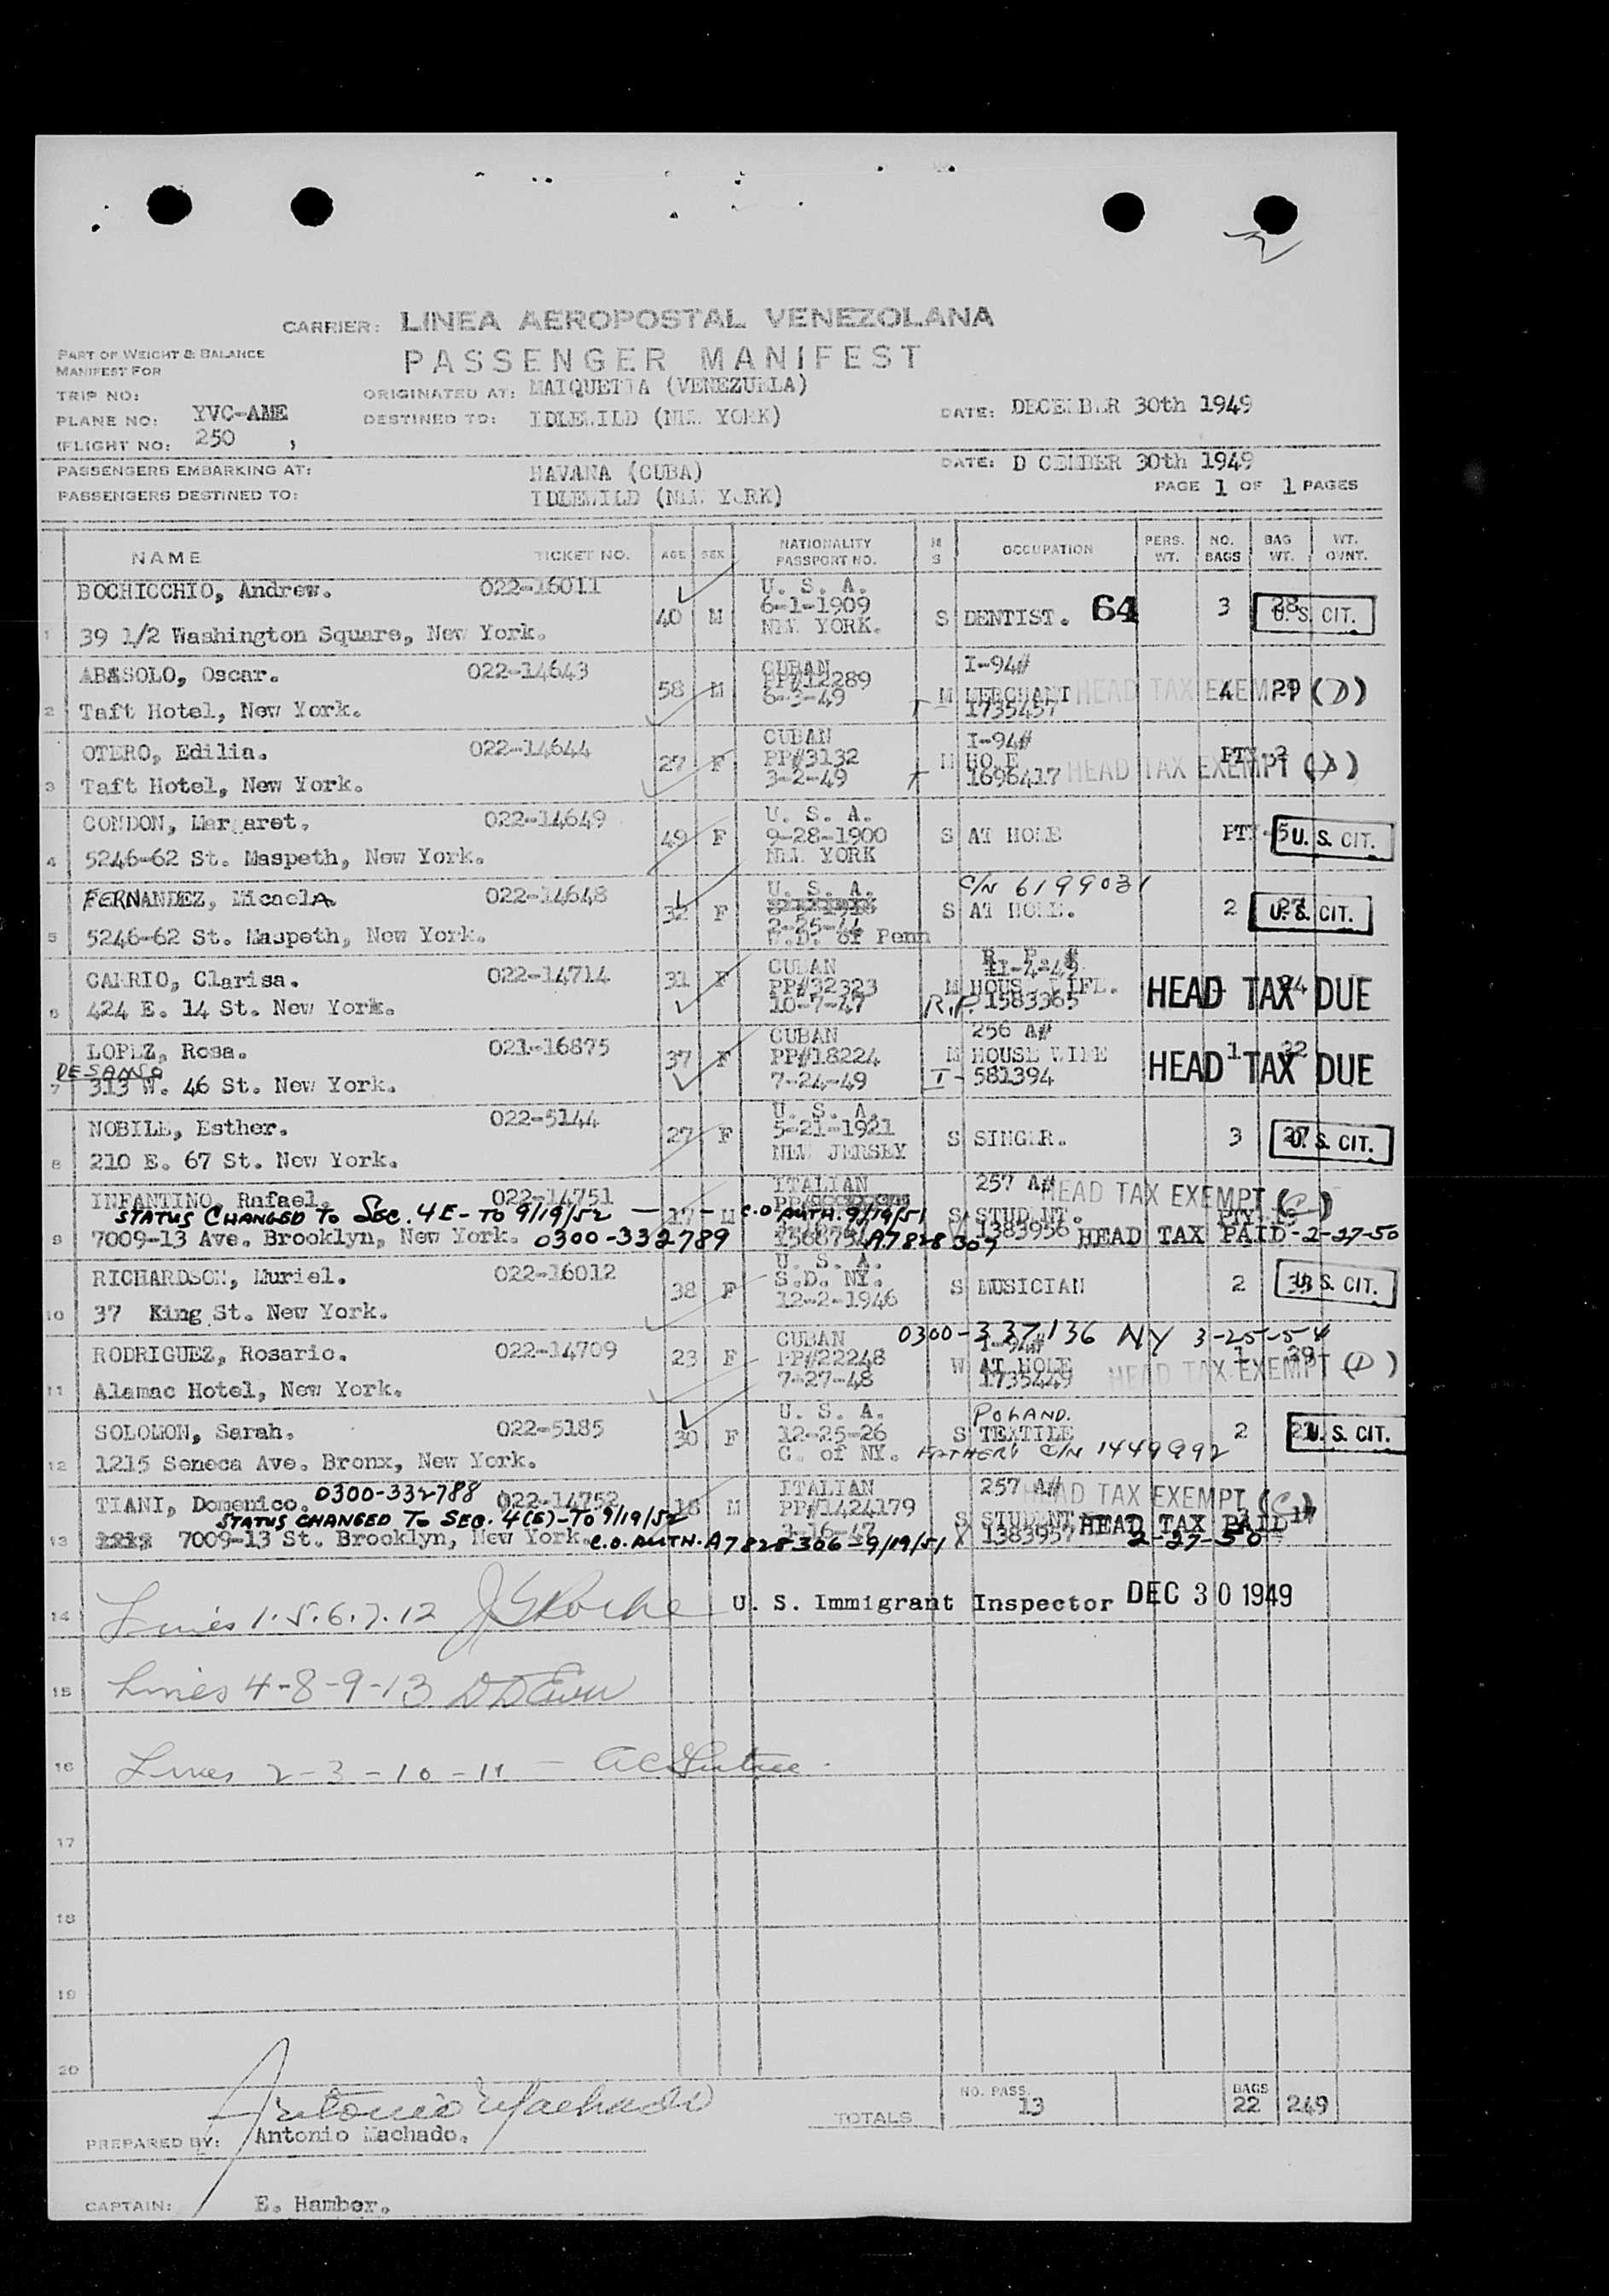 CARRIER: LINEA AEROPOSTAL VENEZOLANA
PART OF WEIGHT & BALANCE
MANIFEST FOR
PASSENGER MANIFEST
TRIP NO:
ORIGINATED AT: MAIQUETIA (VENEZUELA)
PLANE NO: YVC-AME
DESTINED TO: IDLEWILD (NEW YORK)
DATE: DECEMBER 30th 1949
(FLIGHT NO: 250 ,
PASSENGERS EMBARKING AT: HAVANA (CUBA)
DATE: D CEMBER 30th 1949
PASSENGERS DESTINED TO: IDLEWILD (NEW YORK)
PAGE 1 OF 1 PAGES
NAME TICKET NO. AGE SEX NATIONALITY PASSPORT NO. M S OCCUPATION PERS. WT. NO. BAGS BAG WT. WT. OVNT.
BOCHICCHIO, Andrew. 022-16011 U. S. A.
40 M 6-1-1909 S DENTIST. 64 3 28 U. S. CIT.
1 39 1/2 Washington Square, New York. NEW YORK.
ABASOLO, Oscar. 022-14643 CUBAN I-94#
58 M PP#12289 M MERCHANT HEAD TAX EXEMPT (D) 4 29
2 Taft Hotel, New York. 6-3-49 T 1735457
OTERO, Edilia. 022-14644 CUBAN I-94#
27 F PP#3132 M HOME PTY-2
3 Taft Hotel, New York. 3-2-49 T 1696417 HEAD TAX EXEMPT (D)
CONDON, Margaret. 022-14649 U. S. A.
49 F 9-28-1900 S AT HOME PTY-5 U. S. CIT.
4 5246-62 St. Maspeth, New York. NEW YORK
FERNANDEZ, Micaela 022-14648 U. S. A. C/N 6199031
32 F S AT HOME. 2 27 U. S. CIT.
2-25-44
5 5246-62 St. Maspeth, New York. W.D. of Penn
CARRIO, Clarisa. 022-14714 31 F CUBAN R. P. #
11-4-49
PP#32323 M HOUSE WIFE. 24 HEAD TAX DUE
6 424 E. 14 St. New York. 10-7-47 R.P. 1583365
LOPEZ, Rosa. 021-16875 CUBAN 256 A#
DE SANSO 37 F PP#18224 M HOUSE WIFE 1 22 HEAD TAX DUE
7 313 W. 46 St. New York. 7-24-49 T- 581394
NOBILE, Esther. 022-5144 U. S. A.
27 F 5-21-1921 S SINGER. 3 27 U. S. CIT.
8 210 E. 67 St. New York. NEW JERSEY
INFANTINO, Rafael. 022-14751 ITALIAN 257 A# HEAD TAX EXEMPT (C)
STATUS CHANGED TO SEC. 4E - TO 9/19/52 — 17 - M C.O. AUTH. 9/19/51 S STUDENT.
9 7009-13 Ave. Brooklyn, New York. 0300-332789 A7828307 1383956 HEAD TAX PAID-2-27-50
RICHARDSON, Muriel. 022-16012 U. S. A.
38 F S.D. NY. S MUSICIAN 2 33 U. S. CIT.
10 37 King St. New York. 12-2-1946
0300-337,136 NY 3-25-54
RODRIGUEZ, Rosario. 022-14709 CUBAN I-94#
23 F PP#22248 W AT HOME 1 29 HEAD TAX EXEMPT (D)
11 Alamac Hotel, New York. 7-27-48 1735449
SOLOMON, Sarah. 022-5185 U. S. A. POLAND.
30 F 12-25-26 S TEXTILE 2 21 U. S. CIT.
12 1215 Seneca Ave. Bronx, New York. C. of NY. FATHER'S C/N 1449992
TIANI, Domenico. 0300-332788 022-14752 ITALIAN 257 A# HEAD TAX EXEMPT (C)
18 M PP#1424179
STATUS CHANGED TO SEC. 4(E)-TO 9/19/52 3-16-47 S STUDENT HEAD TAX PAID
13 7009-13 St. Brooklyn, New York. C.O. AUTH. A7828306-9/19/51 1383957 2-27-50
14 Lines 1.5.6.7.12 U. S. Immigrant Inspector DEC 30 1949
15 Lines 4-8-9-13
16 Lines 2-3-10-11 -
17
18
19
20
TOTALS NO. PASS. 13 BAGS 22 249
Antonio Machado
PREPARED BY: Antonio Machado.
CAPTAIN: E. Hamber.